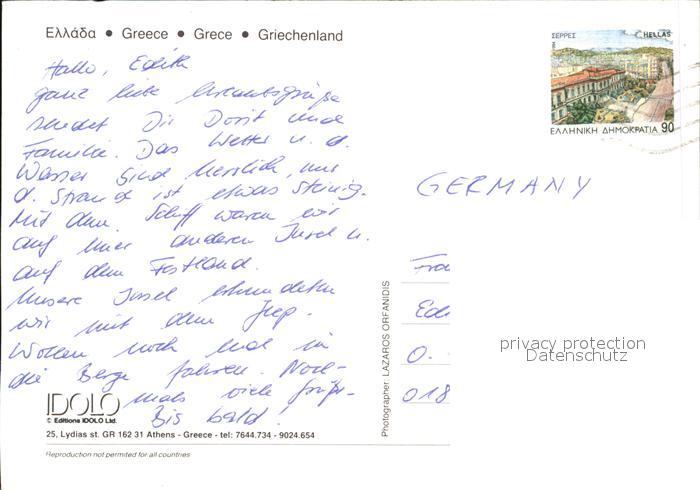 Ελλάδα • Greece • Grece • Griechenland
Hallo, Edith
ganz liebe Urlaubsgrüße
sendet Dir Dorit und
Familie. Das Wetter u. d.
Wasser sind herrlich, nur
d. Strand ist etwas steinig.
Mit dem Schiff waren wir
auf einer anderen Insel u.
auf dem Festland.
Unsere Insel erkundeten
wir mit dem Jeep.
Wollen noch mal in
die Berge fahren. Noch-
mals viele Grüße.
Bis bald!
IDOLO
© Editions IDOLO Ltd.
25, Lydias st. GR 162 31 Athens - Greece - tel: 7644.734 - 9024.654
Reproduction not permited for all countries
Photographer: LAZAROS ORFANIDIS
ΣΕΡΡΕΣ HELLAS
ΕΛΛΗΝΙΚΗ ΔΗΜΟΚΡΑΤΙΑ 90
GERMANY
Fra
Edi
O.
018
privacy protection
Datenschutz